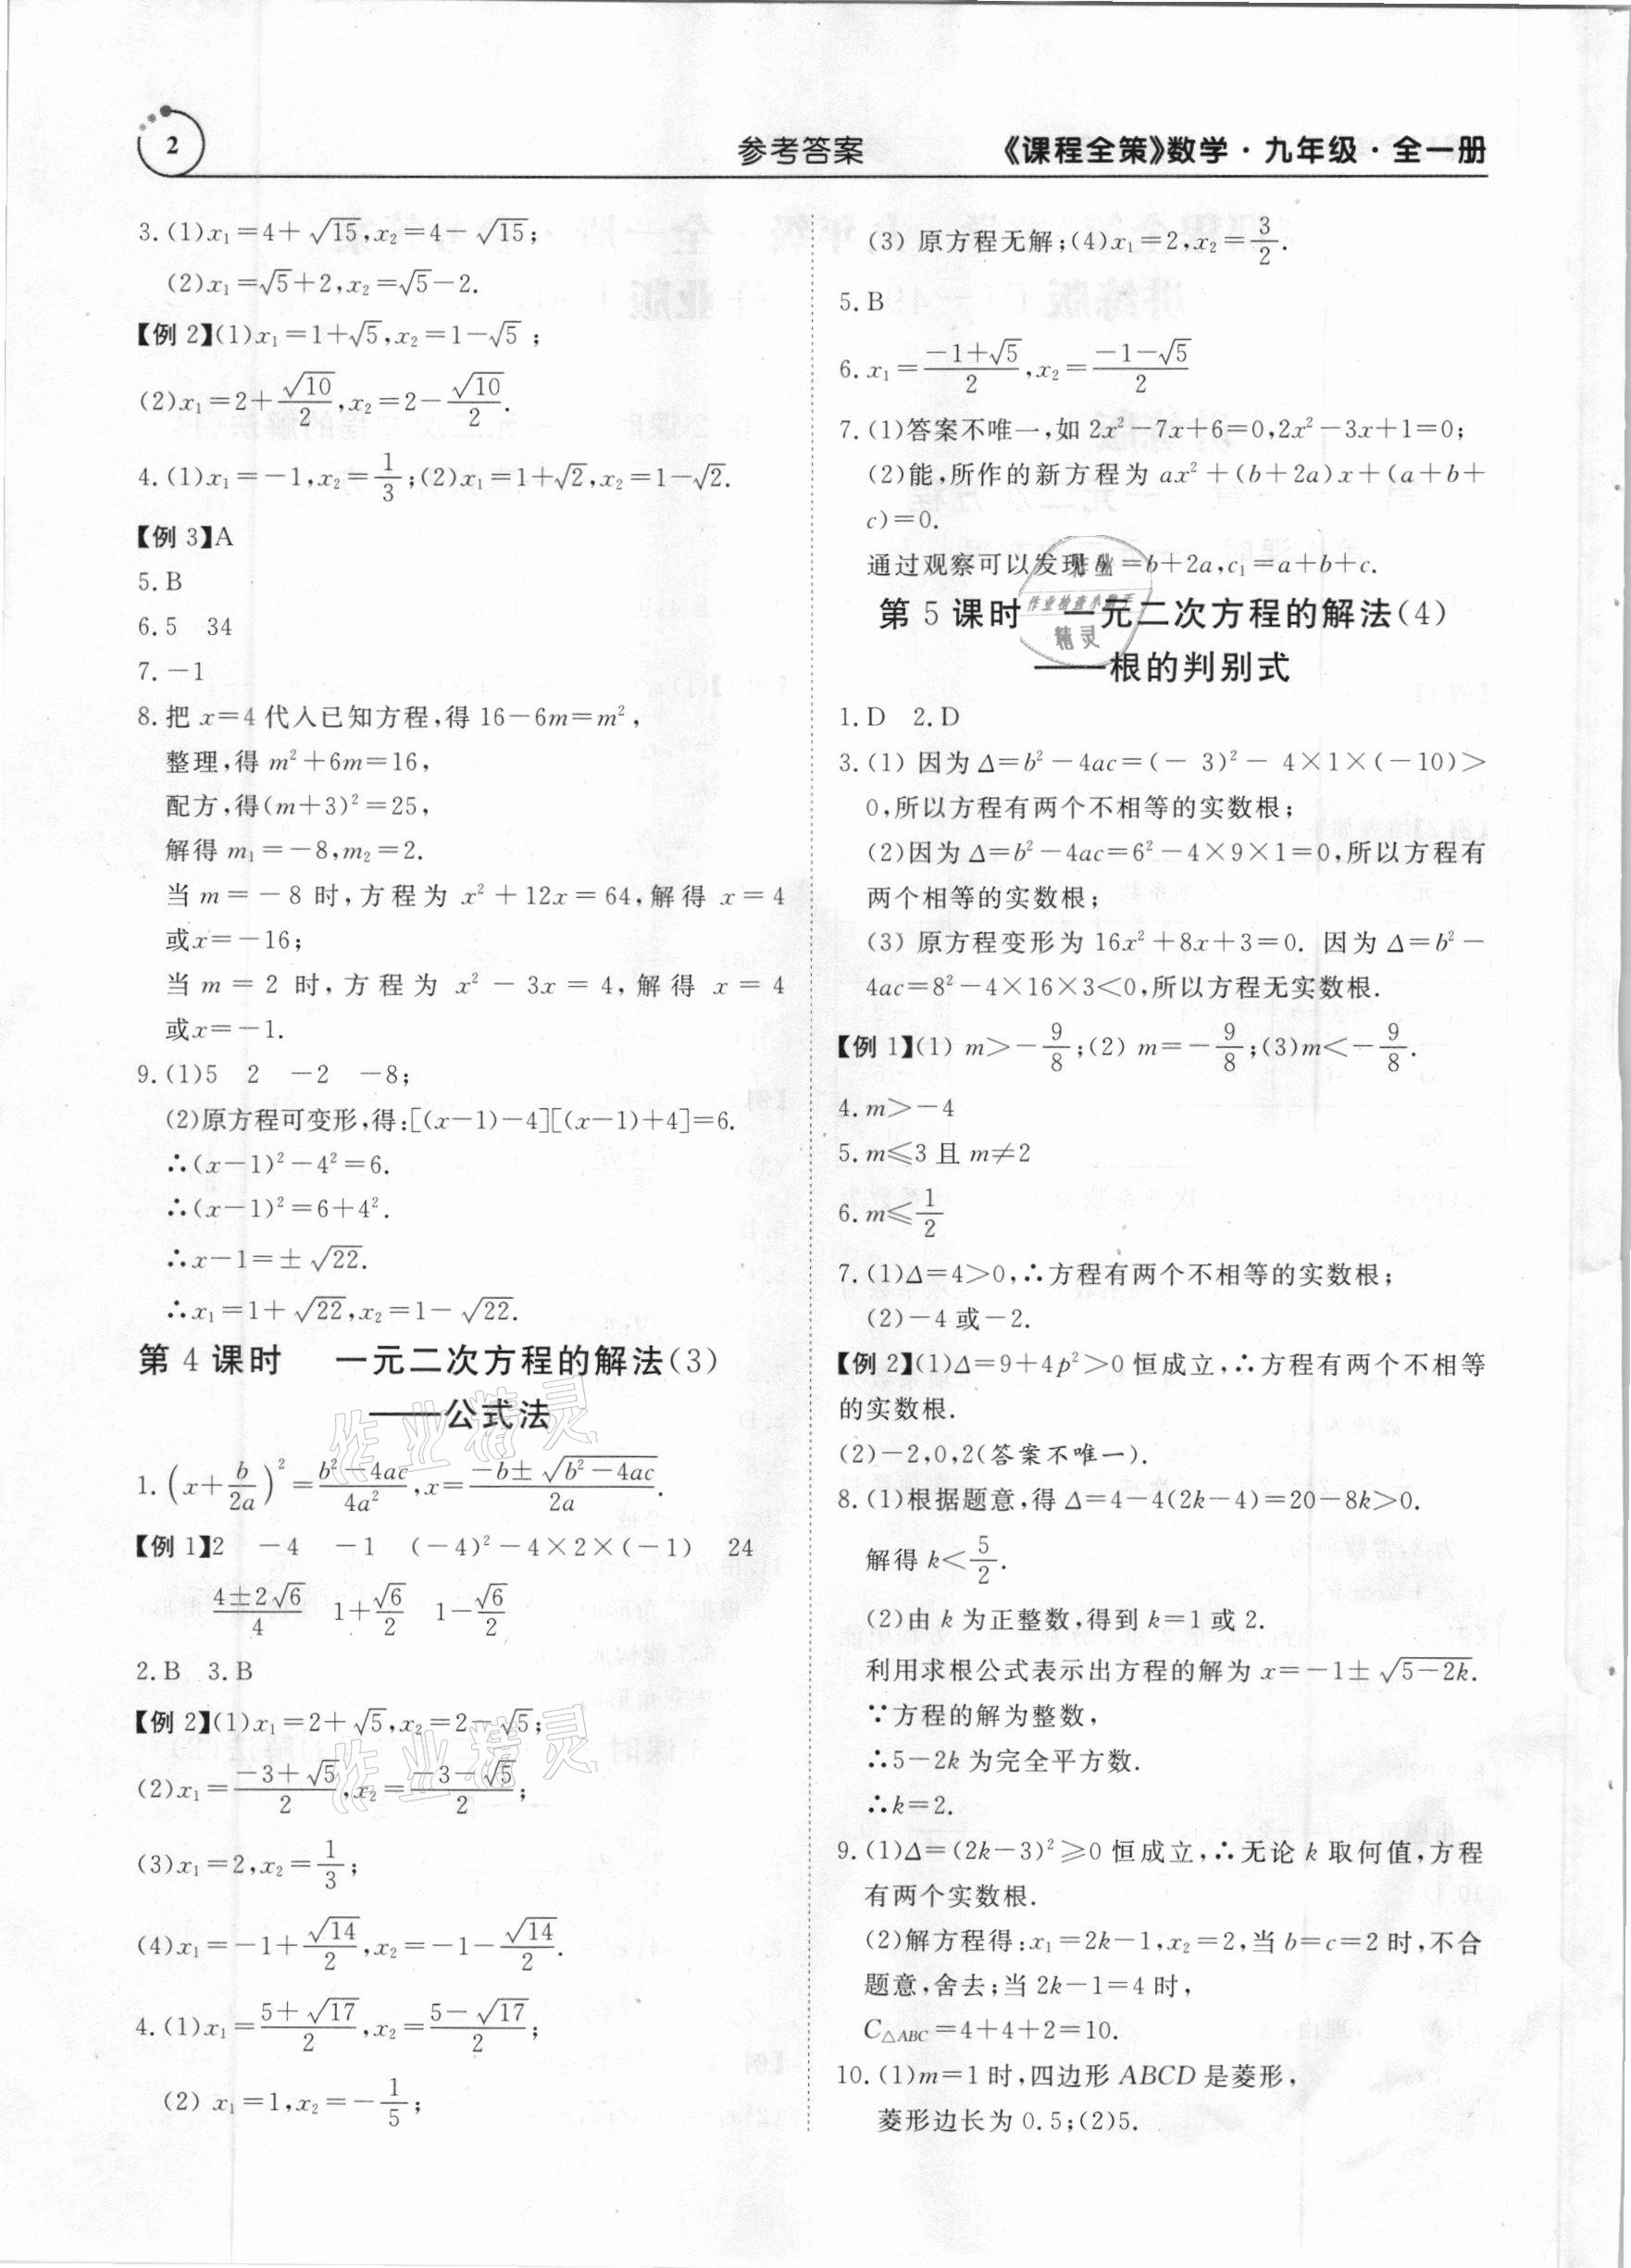 2
参考答案 《课程全策》数学·九年级·全一册
3.(1)x₁=4+√15,x₂=4-√15;
(2)x₁=√5+2,x₂=√5-2.
【例 2】(1)x₁=1+√5,x₂=1-√5;
(2)x₁=2+√10/2,x₂=2-√10/2.
4.(1)x₁=-1,x₂=1/3;(2)x₁=1+√2,x₂=1-√2.
【例 3】A
5.B
6.5 34
7.-1
8.把 x=4 代入已知方程,得 16-6m=m²,
整理,得 m²+6m=16,
配方,得(m+3)²=25,
解得 m₁=-8,m₂=2.
当 m=-8 时,方程为 x²+12x=64,解得 x=4
或x=-16;
当 m=2 时,方程为 x²-3x=4,解得 x=4
或x=-1.
9.(1)5 2 -2 -8;
(2)原方程可变形,得:[(x-1)-4][(x-1)+4]=6.
∴(x-1)²-4²=6.
∴(x-1)²=6+4².
∴x-1=±√22.
∴x₁=1+√22,x₂=1-√22.
第 4 课时 一元二次方程的解法(3)
——公式法
1.(x+b/2a)²=(b²-4ac)/4a²,x=(-b±√(b²-4ac))/2a.
【例 1】2 -4 -1 (-4)²-4×2×(-1) 24
(4±2√6)/4 1+√6/2 1-√6/2
2.B 3.B
【例 2】(1)x₁=2+√5,x₂=2-√5;
(2)x₁=(-3+√5)/2,x₂=(-3-√5)/2;
(3)x₁=2,x₂=1/3;
(4)x₁=-1+√14/2,x₂=-1-√14/2.
4.(1)x₁=(5+√17)/2,x₂=(5-√17)/2;
(2) x₁=1,x₂=-1/5;
(3) 原方程无解;(4)x₁=2,x₂=3/2.
5.B
6.x₁=(-1+√5)/2,x₂=(-1-√5)/2
7.(1)答案不唯一,如 2x²-7x+6=0,2x²-3x+1=0;
(2)能,所作的新方程为 ax²+(b+2a)x+(a+b+
c)=0.
通过观察可以发现 =b+2a,c₁=a+b+c.
第 5 课时 一元二次方程的解法(4)
——根的判别式
1.D 2.D
3.(1) 因为 Δ=b²-4ac=(-3)²-4×1×(-10)>
0,所以方程有两个不相等的实数根;
(2)因为 Δ=b²-4ac=6²-4×9×1=0,所以方程有
两个相等的实数根;
(3) 原方程变形为 16x²+8x+3=0. 因为 Δ=b²-
4ac=8²-4×16×3<0,所以方程无实数根.
【例 1】(1) m>-9/8;(2) m=-9/8;(3)m<-9/8.
4.m>-4
5.m≤3 且 m≠2
6.m≤1/2
7.(1)Δ=4>0,∴方程有两个不相等的实数根;
(2)-4 或-2.
【例 2】(1)Δ=9+4p²>0 恒成立,∴方程有两个不相等
的实数根.
(2)-2,0,2(答案不唯一).
8.(1)根据题意,得 Δ=4-4(2k-4)=20-8k>0.
解得 k<5/2.
(2)由 k 为正整数,得到 k=1 或 2.
利用求根公式表示出方程的解为 x=-1±√(5-2k).
∵方程的解为整数,
∴5-2k 为完全平方数.
∴k=2.
9.(1)Δ=(2k-3)²≥0 恒成立,∴无论 k 取何值,方程
有两个实数根.
(2)解方程得:x₁=2k-1,x₂=2,当 b=c=2 时,不合
题意,舍去;当 2k-1=4 时,
C△ABC=4+4+2=10.
10.(1)m=1 时,四边形 ABCD 是菱形,
菱形边长为 0.5;(2)5.
作业精灵
作业精灵
作业检查小帮手
精灵